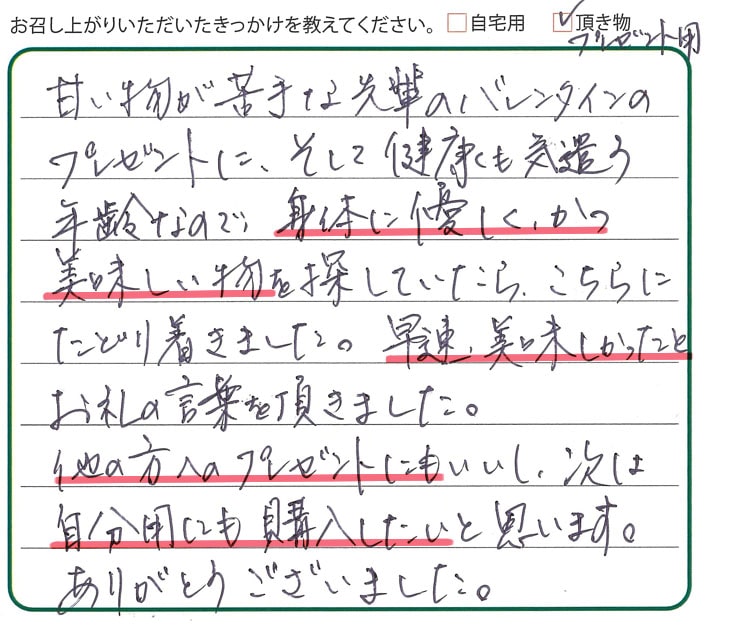 お召し上がりいただいたきっかけを教えてください。 □自宅用 ☑頂き物
プレゼント用
甘い物が苦手な先輩のバレンタインの
プレゼントに、そして健康にも気遣う
年齢なので、身体に優しく、かつ
美味しい物を探していたら、こちらに
たどり着きました。早速、美味しかったと
お礼の言葉を頂きました。
他の方へのプレゼントにもいいし、次は
自分用にも購入したいと思います。
ありがとうございました。